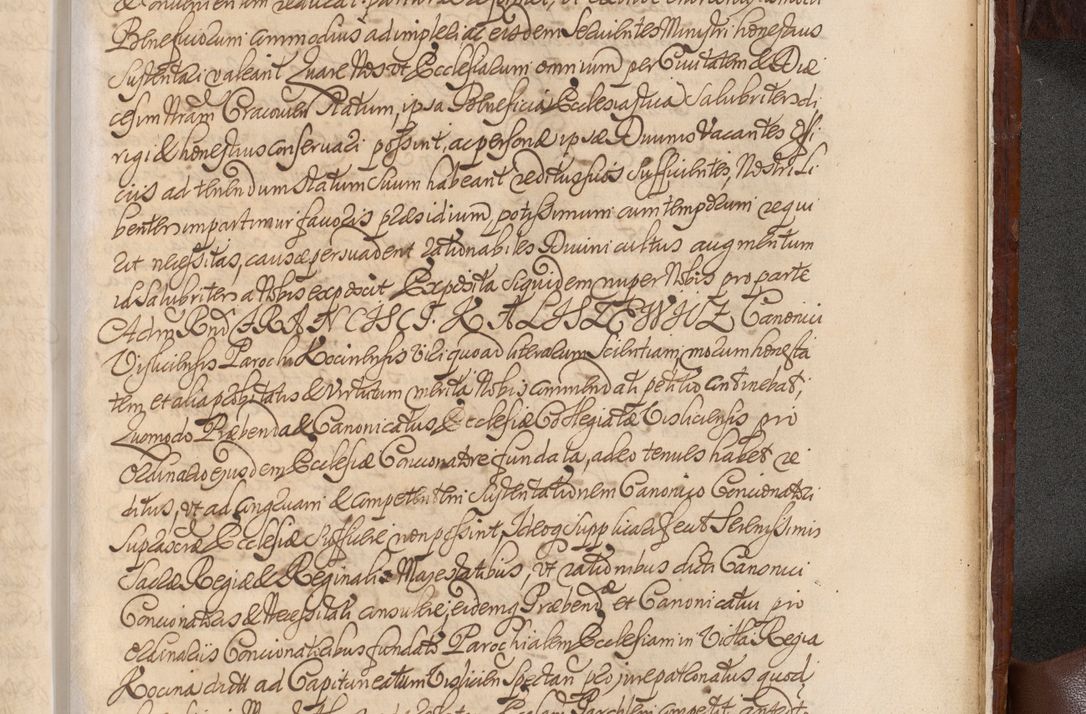 Beneficiorum commodius adimpleri ac eisdem Servientes Ministri honestius
Sustentari valeant Quare Nos vt Ecclesiarum omnium per Ciuitatem & Diæ
cesim Nram Cracovien Statum, ipsa Beneficia Ecclesiastica Salubriter di
rigi & honestius conservari possint, ac personæ ipsæ Diuinis Vacantes Offi
ciis ad tenendum Statum Suum habeant reditus suos Sufficientes, Nostri Li
benter impartimur favoris præsidium, potissimum cum temporum requi
rit necessitas, causæ persuadent rationabiles Diuini cultus augmentum
id Salubriter a Nobis exposcit Exposita Siquidem nuper Nobis pro parte
Admr Rndi FRANCISCI KALISZEWICZ Canonici
Visliciensis Parochi Kocinensis Viri quoad literarum Scientiam, morum honesta
tem, et alia probitatis & Virtutum merita Nobis commendati petitio continebat,
Quomodo Præbenda & Canonicatus Ecclesiæ Collegiatæ Visliciensis pro
Ordinario ejusdem Ecclesiæ Concionatore fundata, adeo tenues habet re
ditus, vt ad congruam & competentem Sustentationem Canonico Concionatori
Suprascræ Ecclesiæ Sufficere non possint, Ideoq Supplicari fecit Serenissimis
Sacræ Regiæ & Reginalis Majestatibus, vt rationibus dicti Canonici
Concionatoris & Necessitati consulere, eidemq Præbendæ et Canonicatui pro
Ordinariis Concionatoribus fundato Parochialem Ecclesiam in Villa Regia
Kocina dicta ad Capitaneatum Vislicien Spectan pro, jure patronatus quod,